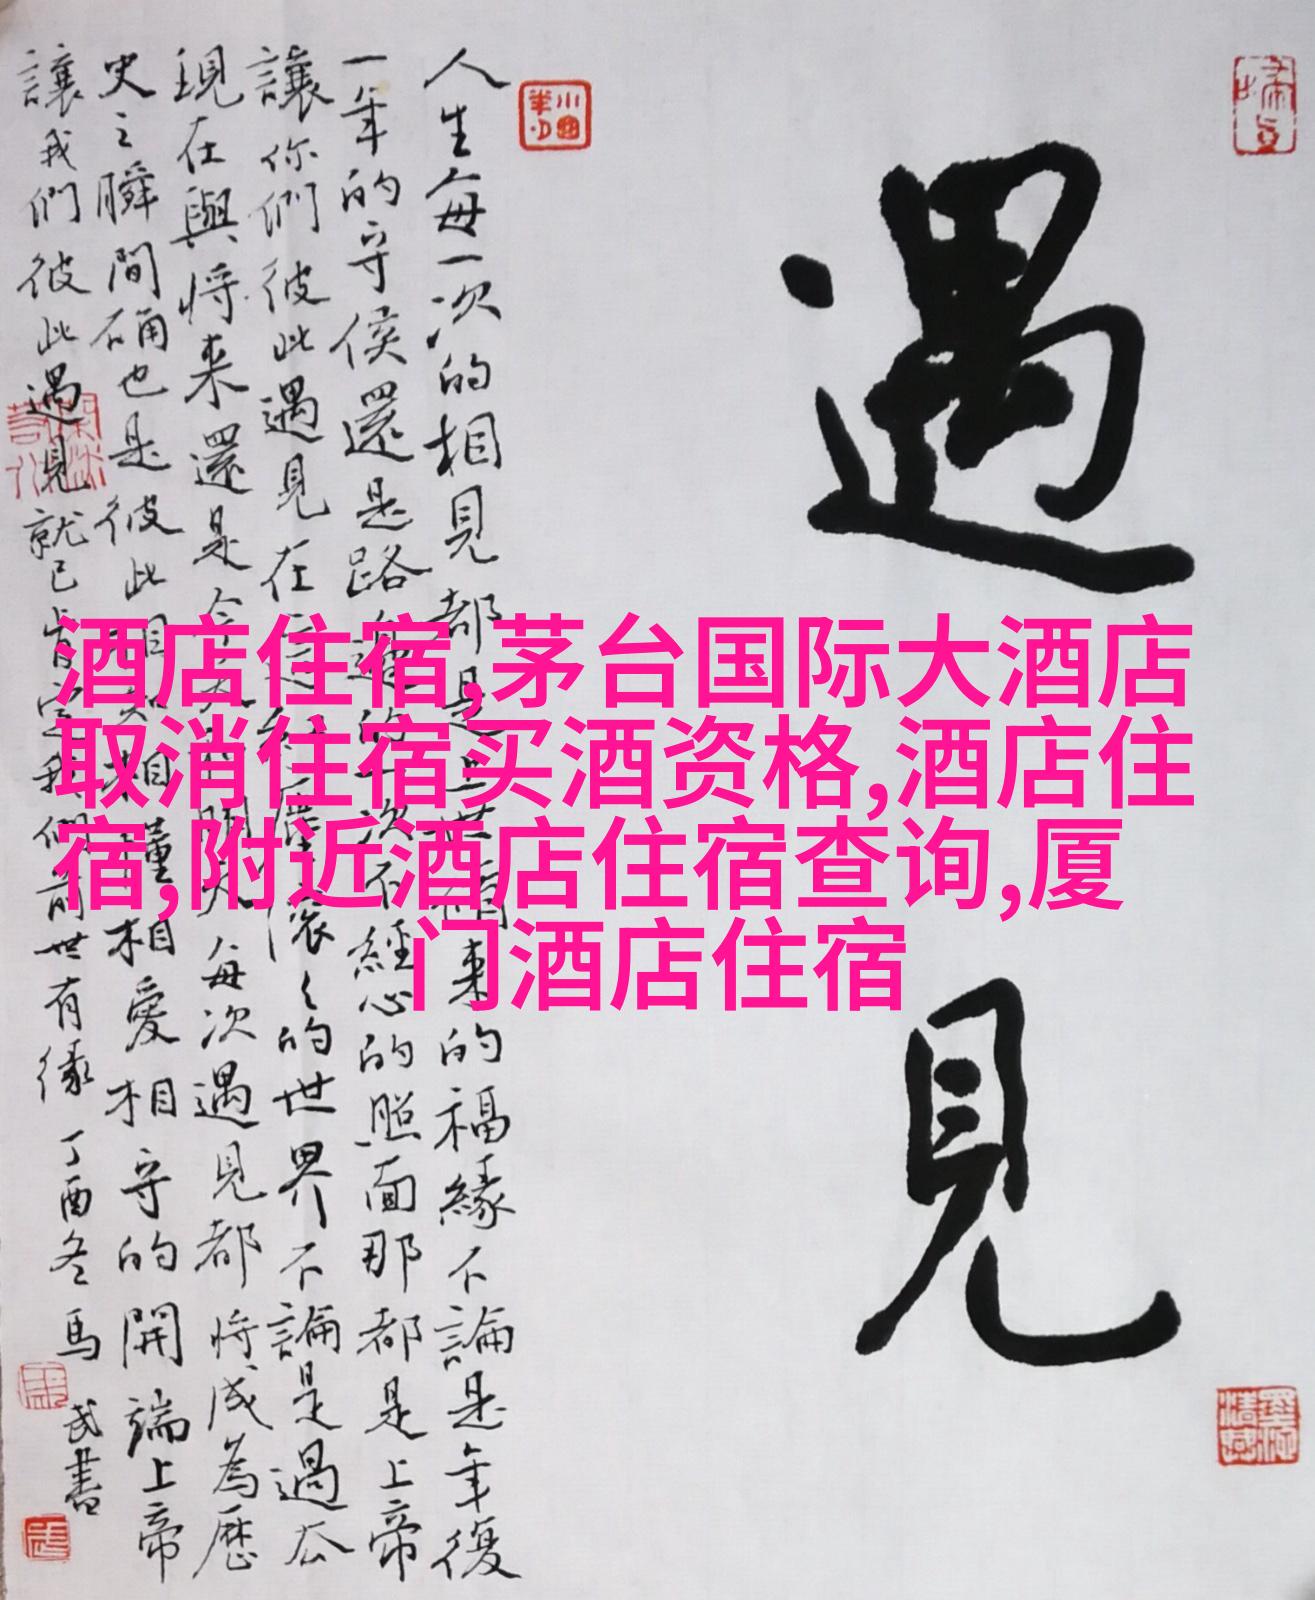 遇見
人生每一次的相見都是上世来的福緣不論是年復
一年的守侯還是路邊的一次不經心的照面那都是上帝
讓你們彼此遇見在這紅塵滾々的世界不論是過去
現在與將来還是今天明天每次遇見都將成為歷
史之瞬間确也是彼此相知相懂相愛相守的開端上帝
讓我們彼此遇見就已肯定我們前世有緣 丁酉冬馬武書
酒店住宿,茅台国际大酒店
取消住宿买酒资格,酒店住
宿,附近酒店住宿查询,厦
门酒店住宿